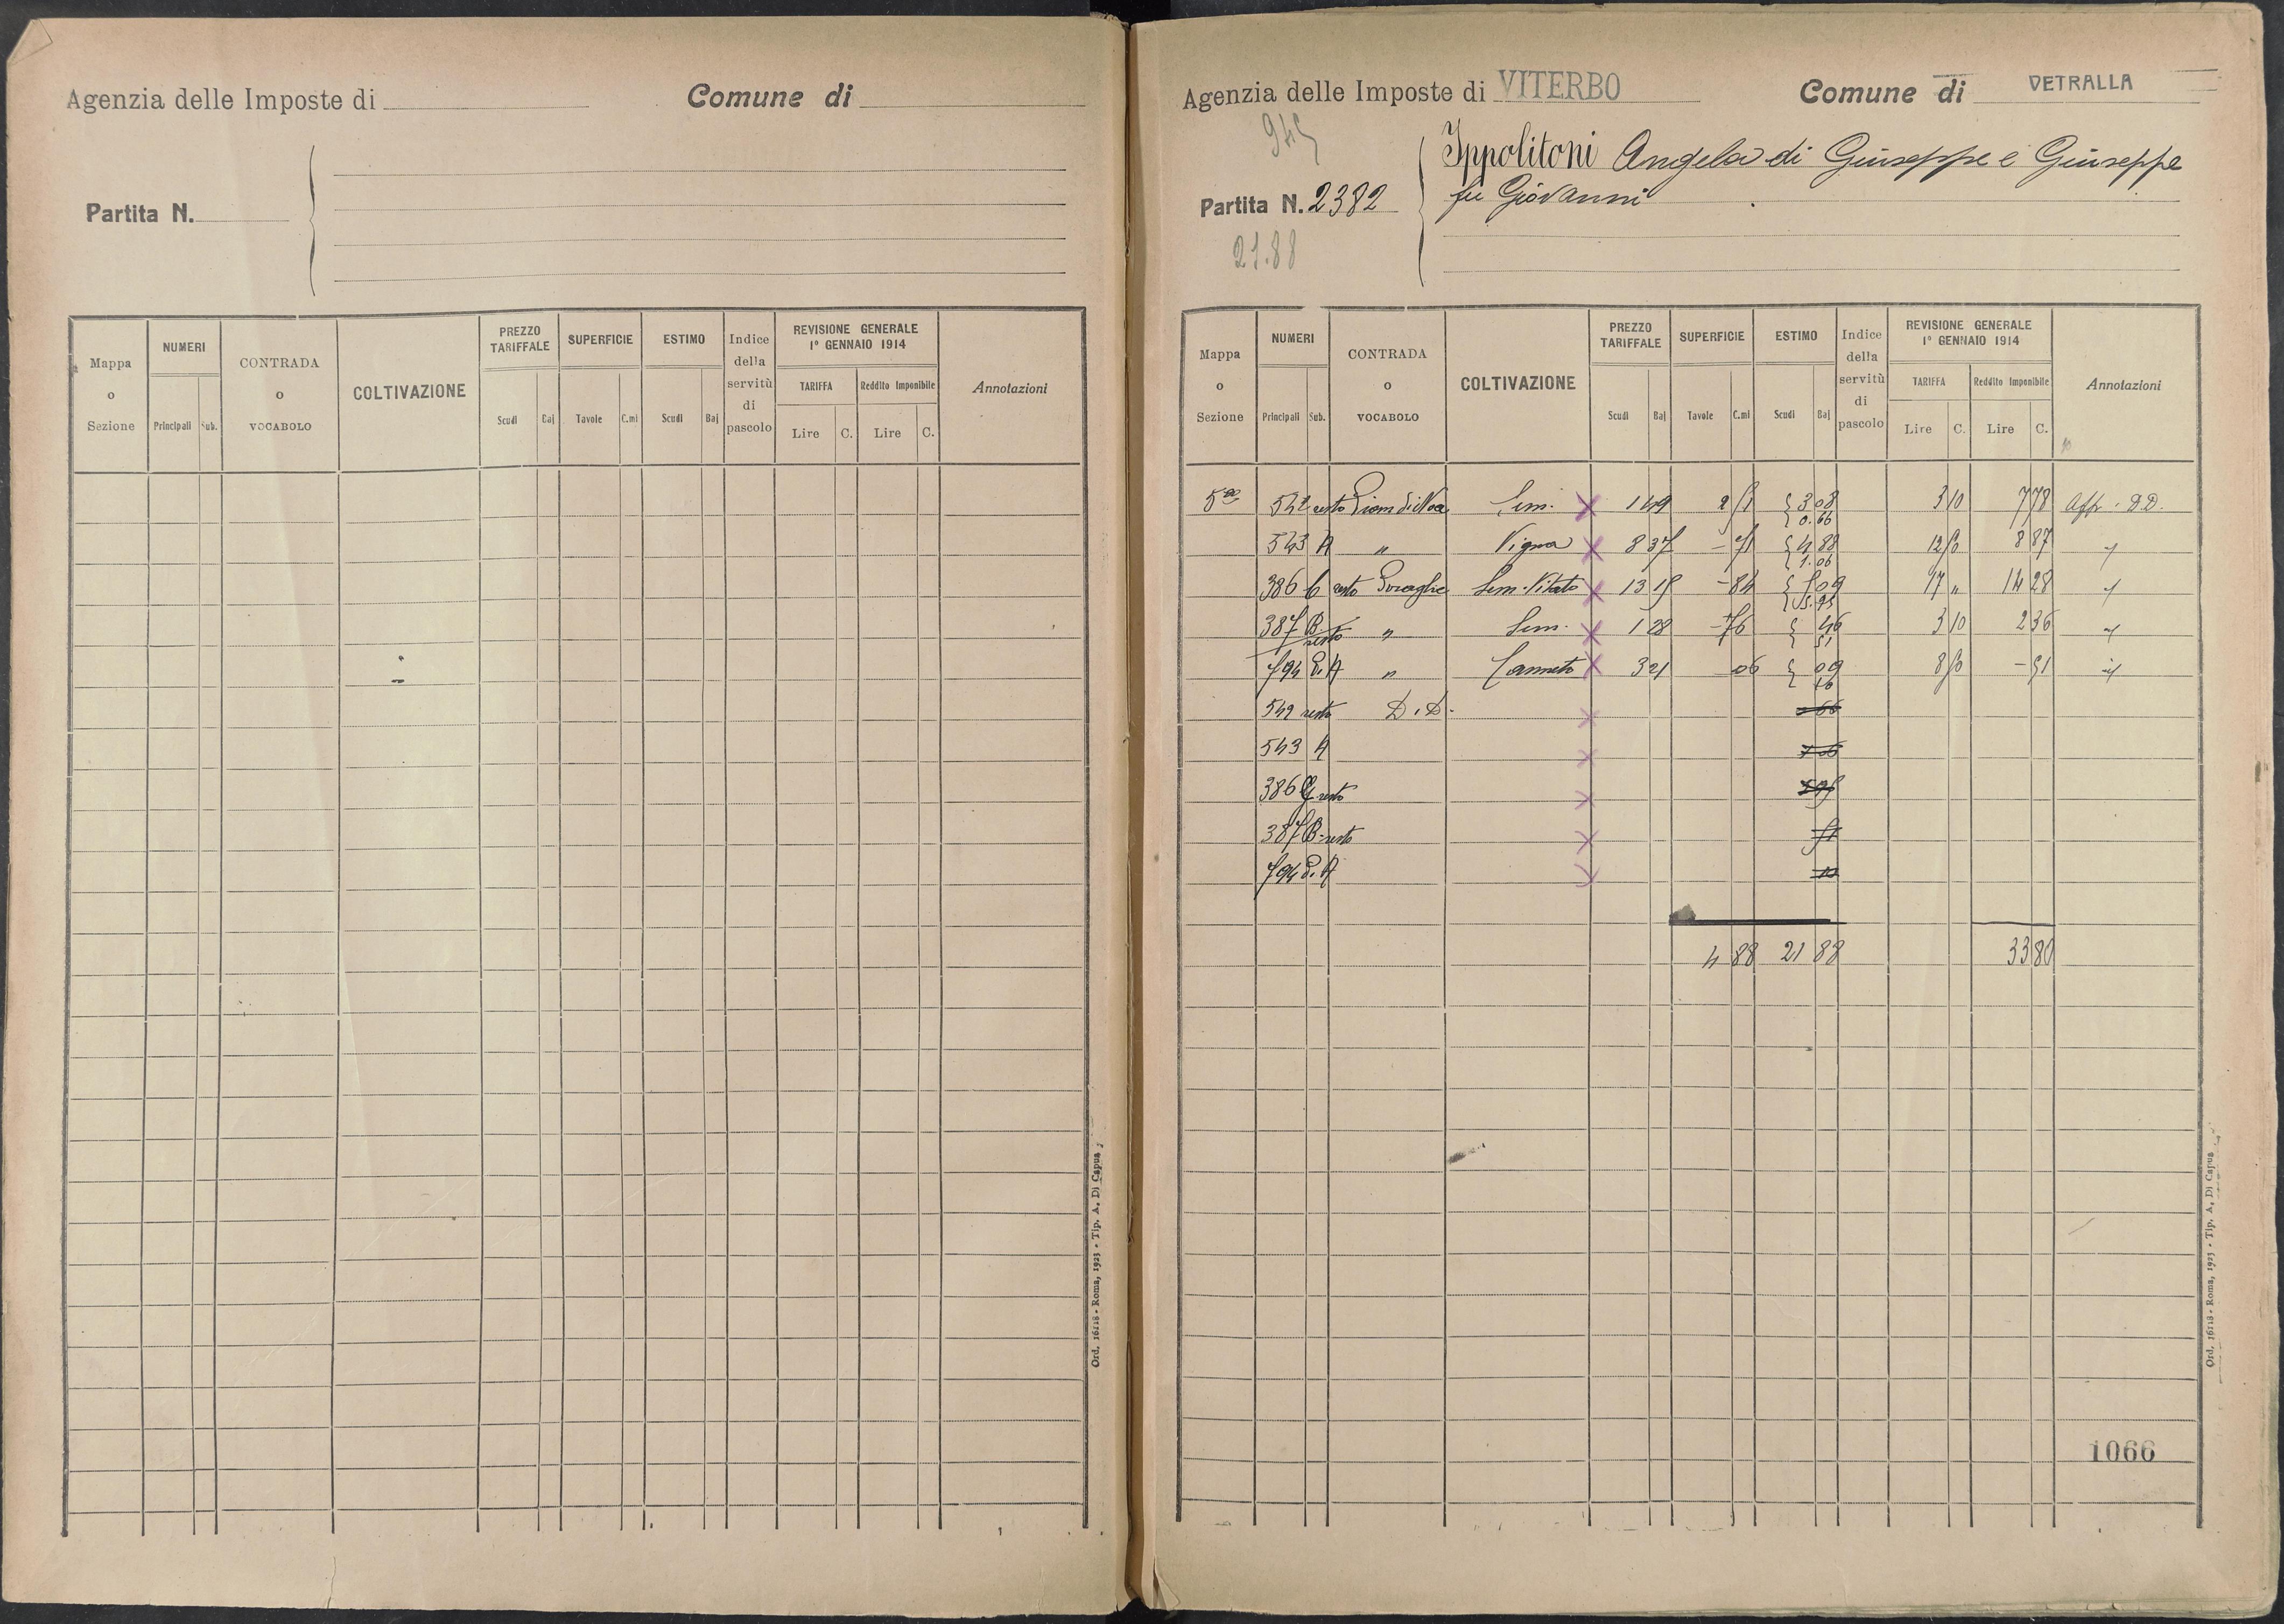 Agenzia delle Imposte di
Comune di
Partita N.
Mappa o Sezione
NUMERI
Principali
Sub.
CONTRADA o VOCABOLO
COLTIVAZIONE
PREZZO TARIFFALE
Scudi
Baj
SUPERFICIE
Tavole
C.mi
ESTIMO
Scudi
Baj
Indice della servitù di pascolo
REVISIONE GENERALE
1° GENNAIO 1914
TARIFFA
Reddito Imponibile
Lire
C.
Lire
C.
Annotazioni
Ord. 16118 - Roma, 1923 - Tip. A. Di Capua
Agenzia delle Imposte di VITERBO
Comune di VETRALLA
Partita N. 2382
Ippolitoni Angela di Giuseppe e Giuseppe
fu Giovanni
21.88
Mappa o Sezione
NUMERI
Principali
Sub.
CONTRADA o VOCABOLO
COLTIVAZIONE
PREZZO TARIFFALE
Scudi
Baj
SUPERFICIE
Tavole
C.mi
ESTIMO
Scudi
Baj
Indice della servitù di pascolo
REVISIONE GENERALE
1° GENNAIO 1914
TARIFFA
Reddito Imponibile
Lire
C.
Lire
C.
Annotazioni
542 resto Sem. 1 49 2 51 3 08 3 10 7 78 Aff. D.D.
0.66
543 A " Vigna 8 37 4 88 12 50 8 87 "
1.06
386 resto Sem. Vitato 13 15 - 84 17 " 14 28 "
387 B resto " Sem. 1 28 - 76 46 3 10 2 36 "
51
794 A " Canneto 3 21 06 09 8 50 - 51 "
10
542 resto D.D.
543 A
386 resto
387 B resto
794 A
4 88 21 88 33 80
1066
Ord. 16118 - Roma, 1923 - Tip. A. Di Capua